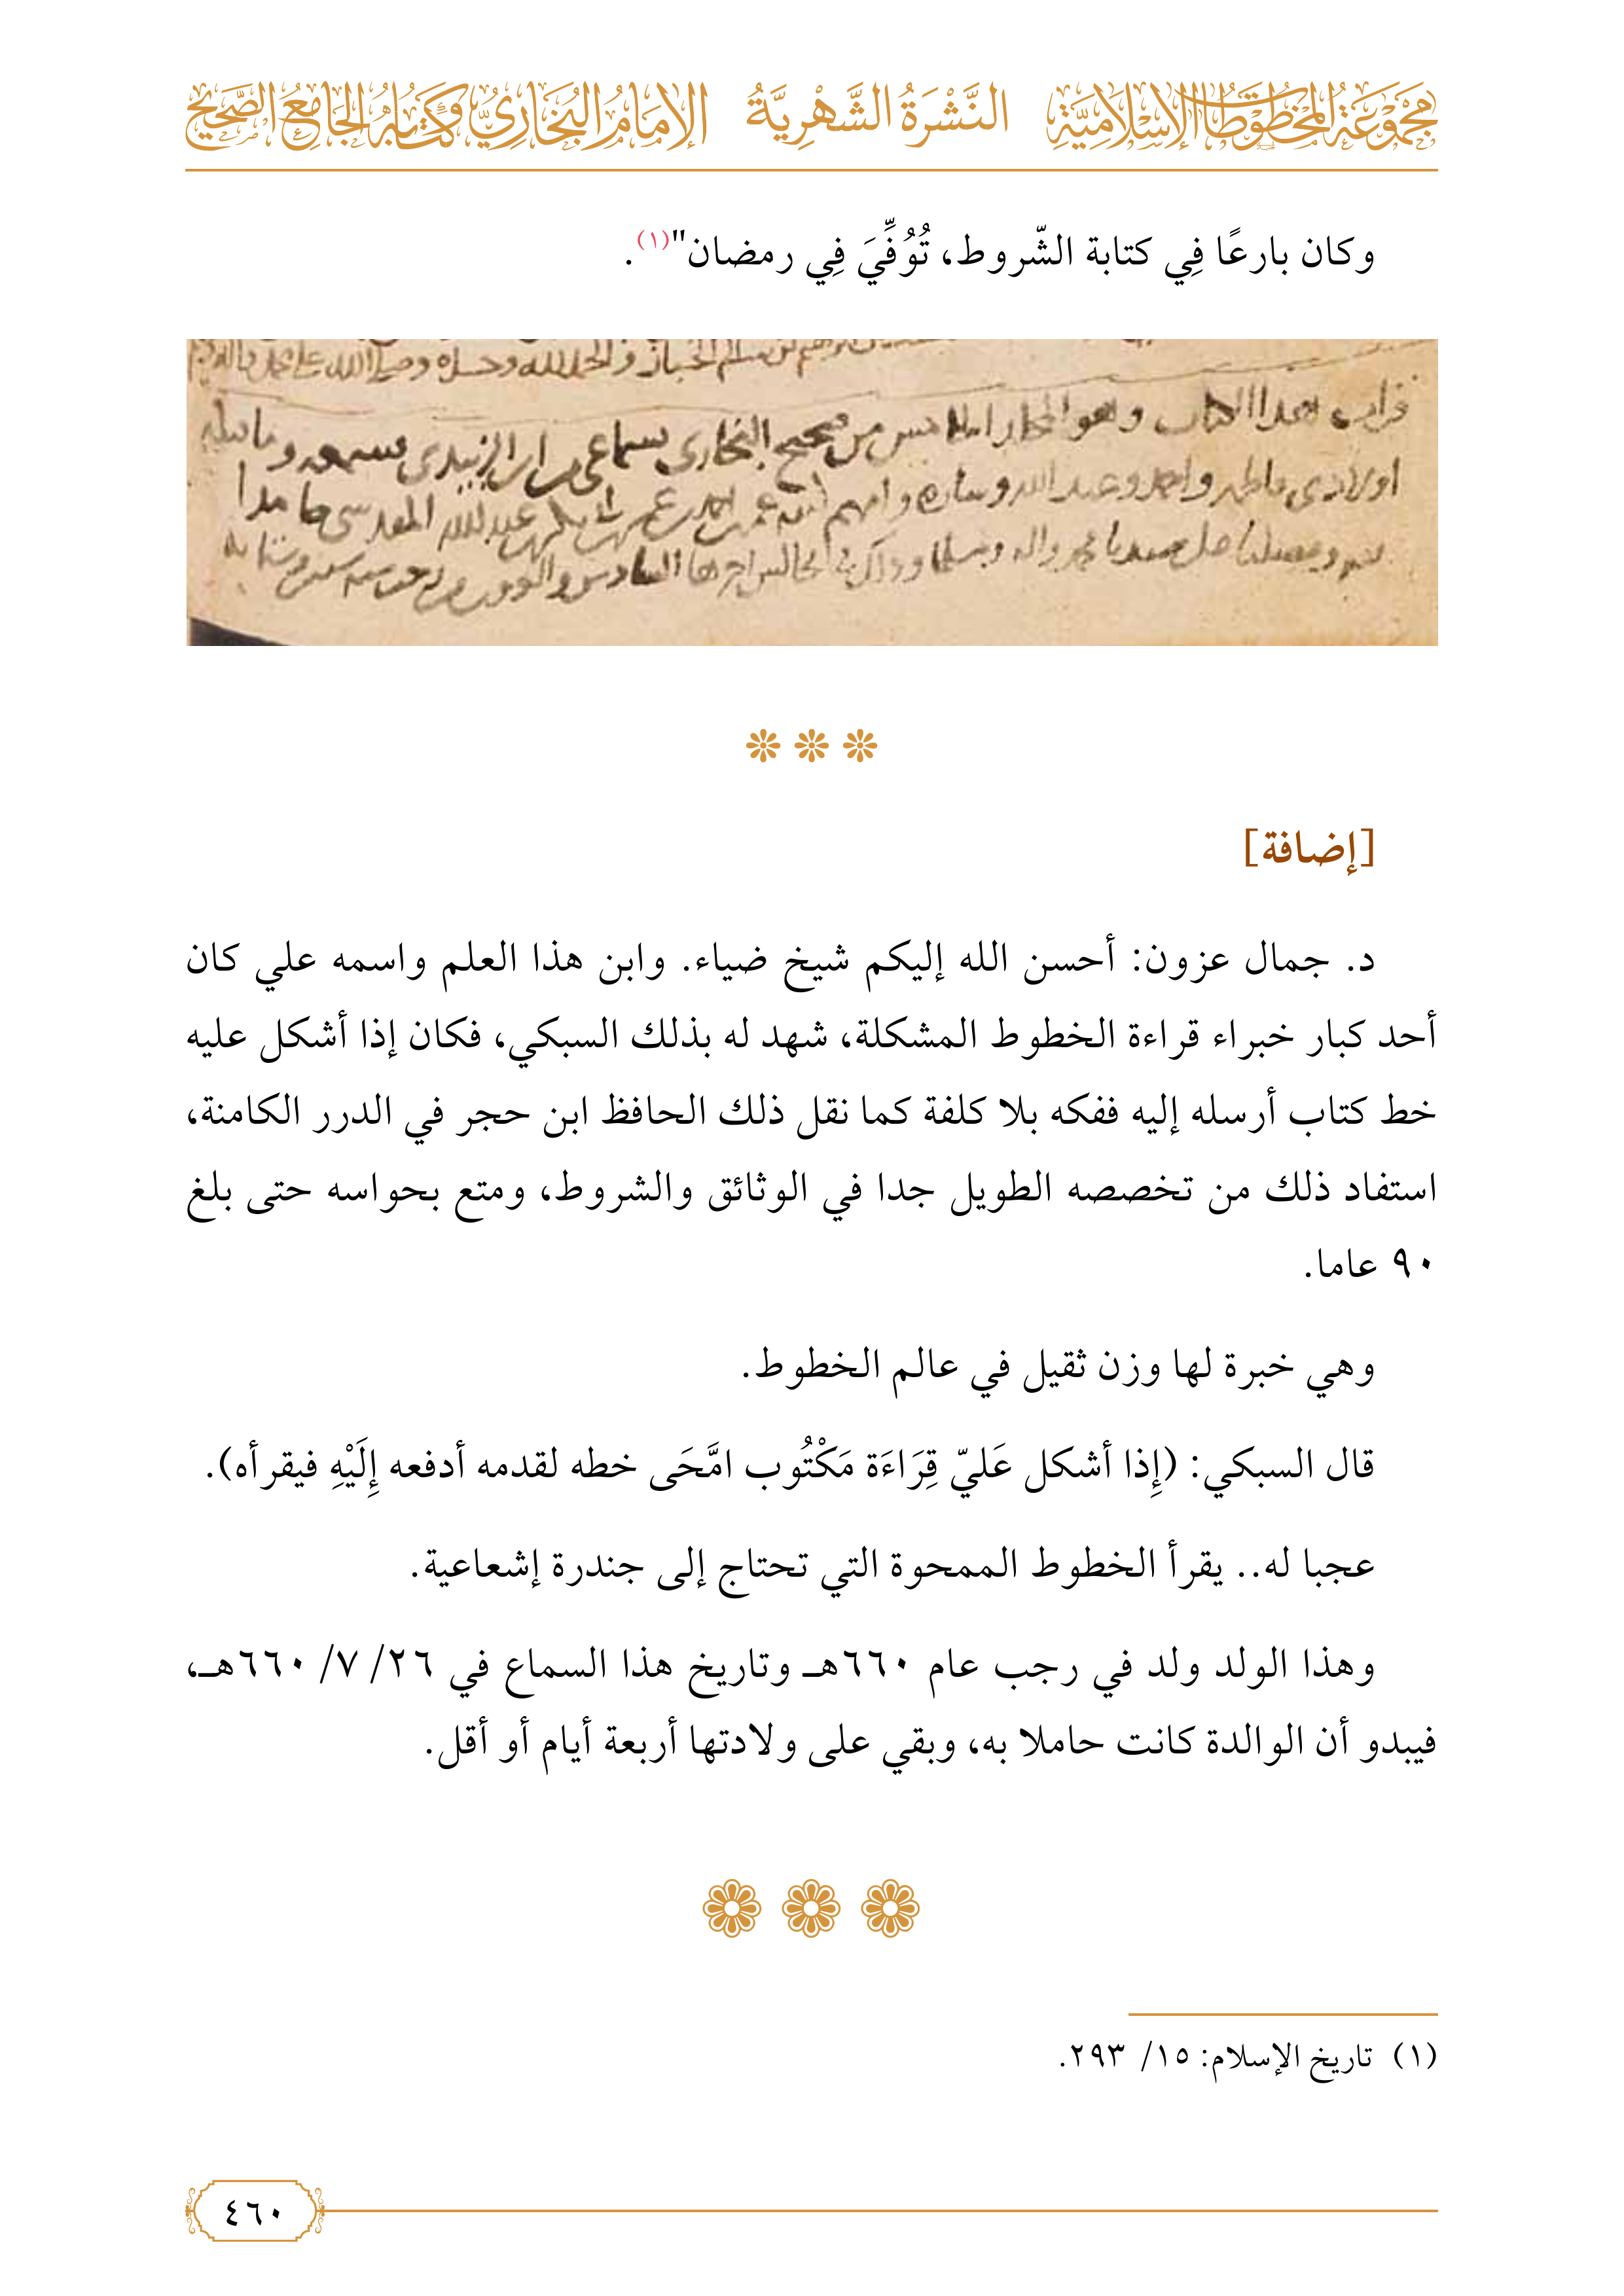 مَجْمُوعَةُ المَخْطُوطَاتِ الإِسْلَامِيَّةِ النَّشْرَةُ الشَّهْرِيَّةُ الإِمَامُ البُخَارِيُّ وَكِتَابُهُ الجَامِعُ الصَّحِيحُ
وكان بارعًا فِي كتابة الشّروط، تُوُفِّيَ فِي رمضان"(١).
قرات هذا الكتاب وهو
من صحيح البخاري بسماعي من ابن الزبيدي فسمعه
اولادي فاطمه واحمد وعبد الله وساره وامهم
محمد واله وسلم
❊ ❊ ❊
[إضافة]
د. جمال عزون: أحسن الله إليكم شيخ ضياء. وابن هذا العلم واسمه علي كان
أحد كبار خبراء قراءة الخطوط المشكلة، شهد له بذلك السبكي، فكان إذا أشكل عليه
خط كتاب أرسله إليه ففكه بلا كلفة كما نقل ذلك الحافظ ابن حجر في الدرر الكامنة،
استفاد ذلك من تخصصه الطويل جدا في الوثائق والشروط، ومتع بحواسه حتى بلغ
٩٠ عاما.
وهي خبرة لها وزن ثقيل في عالم الخطوط.
قال السبكي: (إِذا أشكل عَليّ قِرَاءَة مَكْتُوب امَّحَى خطه لقدمه أدفعه إِلَيْهِ فيقرأه).
عجبا له.. يقرأ الخطوط الممحوة التي تحتاج إلى جندرة إشعاعية.
وهذا الولد ولد في رجب عام ٦٦٠هـ وتاريخ هذا السماع في ٢٦/ ٧/ ٦٦٠هـ،
فيبدو أن الوالدة كانت حاملا به، وبقي على ولادتها أربعة أيام أو أقل.
(١) تاريخ الإسلام: ١٥/ ٢٩٣.
٤٦٠